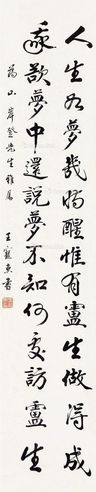 人生如夢幾場醒惟有盧生做得成
我欲夢中還說夢不知何處訪盧生
為山岸登先生雅屬
王龍惠書